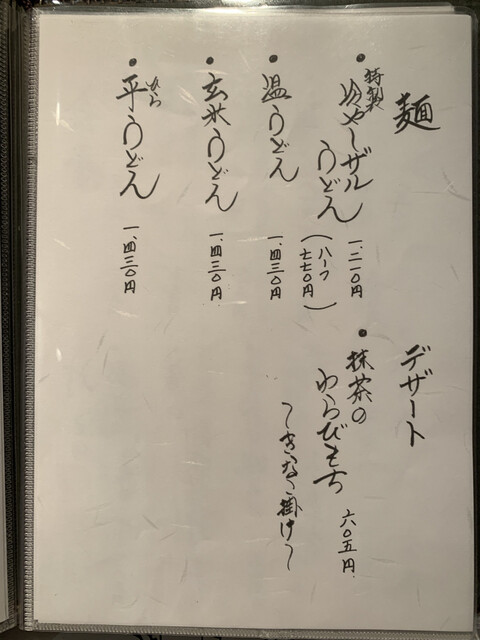 麺
・特製冷やしザル
うどん
一、二一〇円
(ハーフ
七七〇円)
・温うどん
一、四三〇円
・玄米うどん
一、四三〇円
・平うどん
一、四三〇円
デザート
・抹茶の
わらびもち
六〇五円
〜きなこ掛け〜